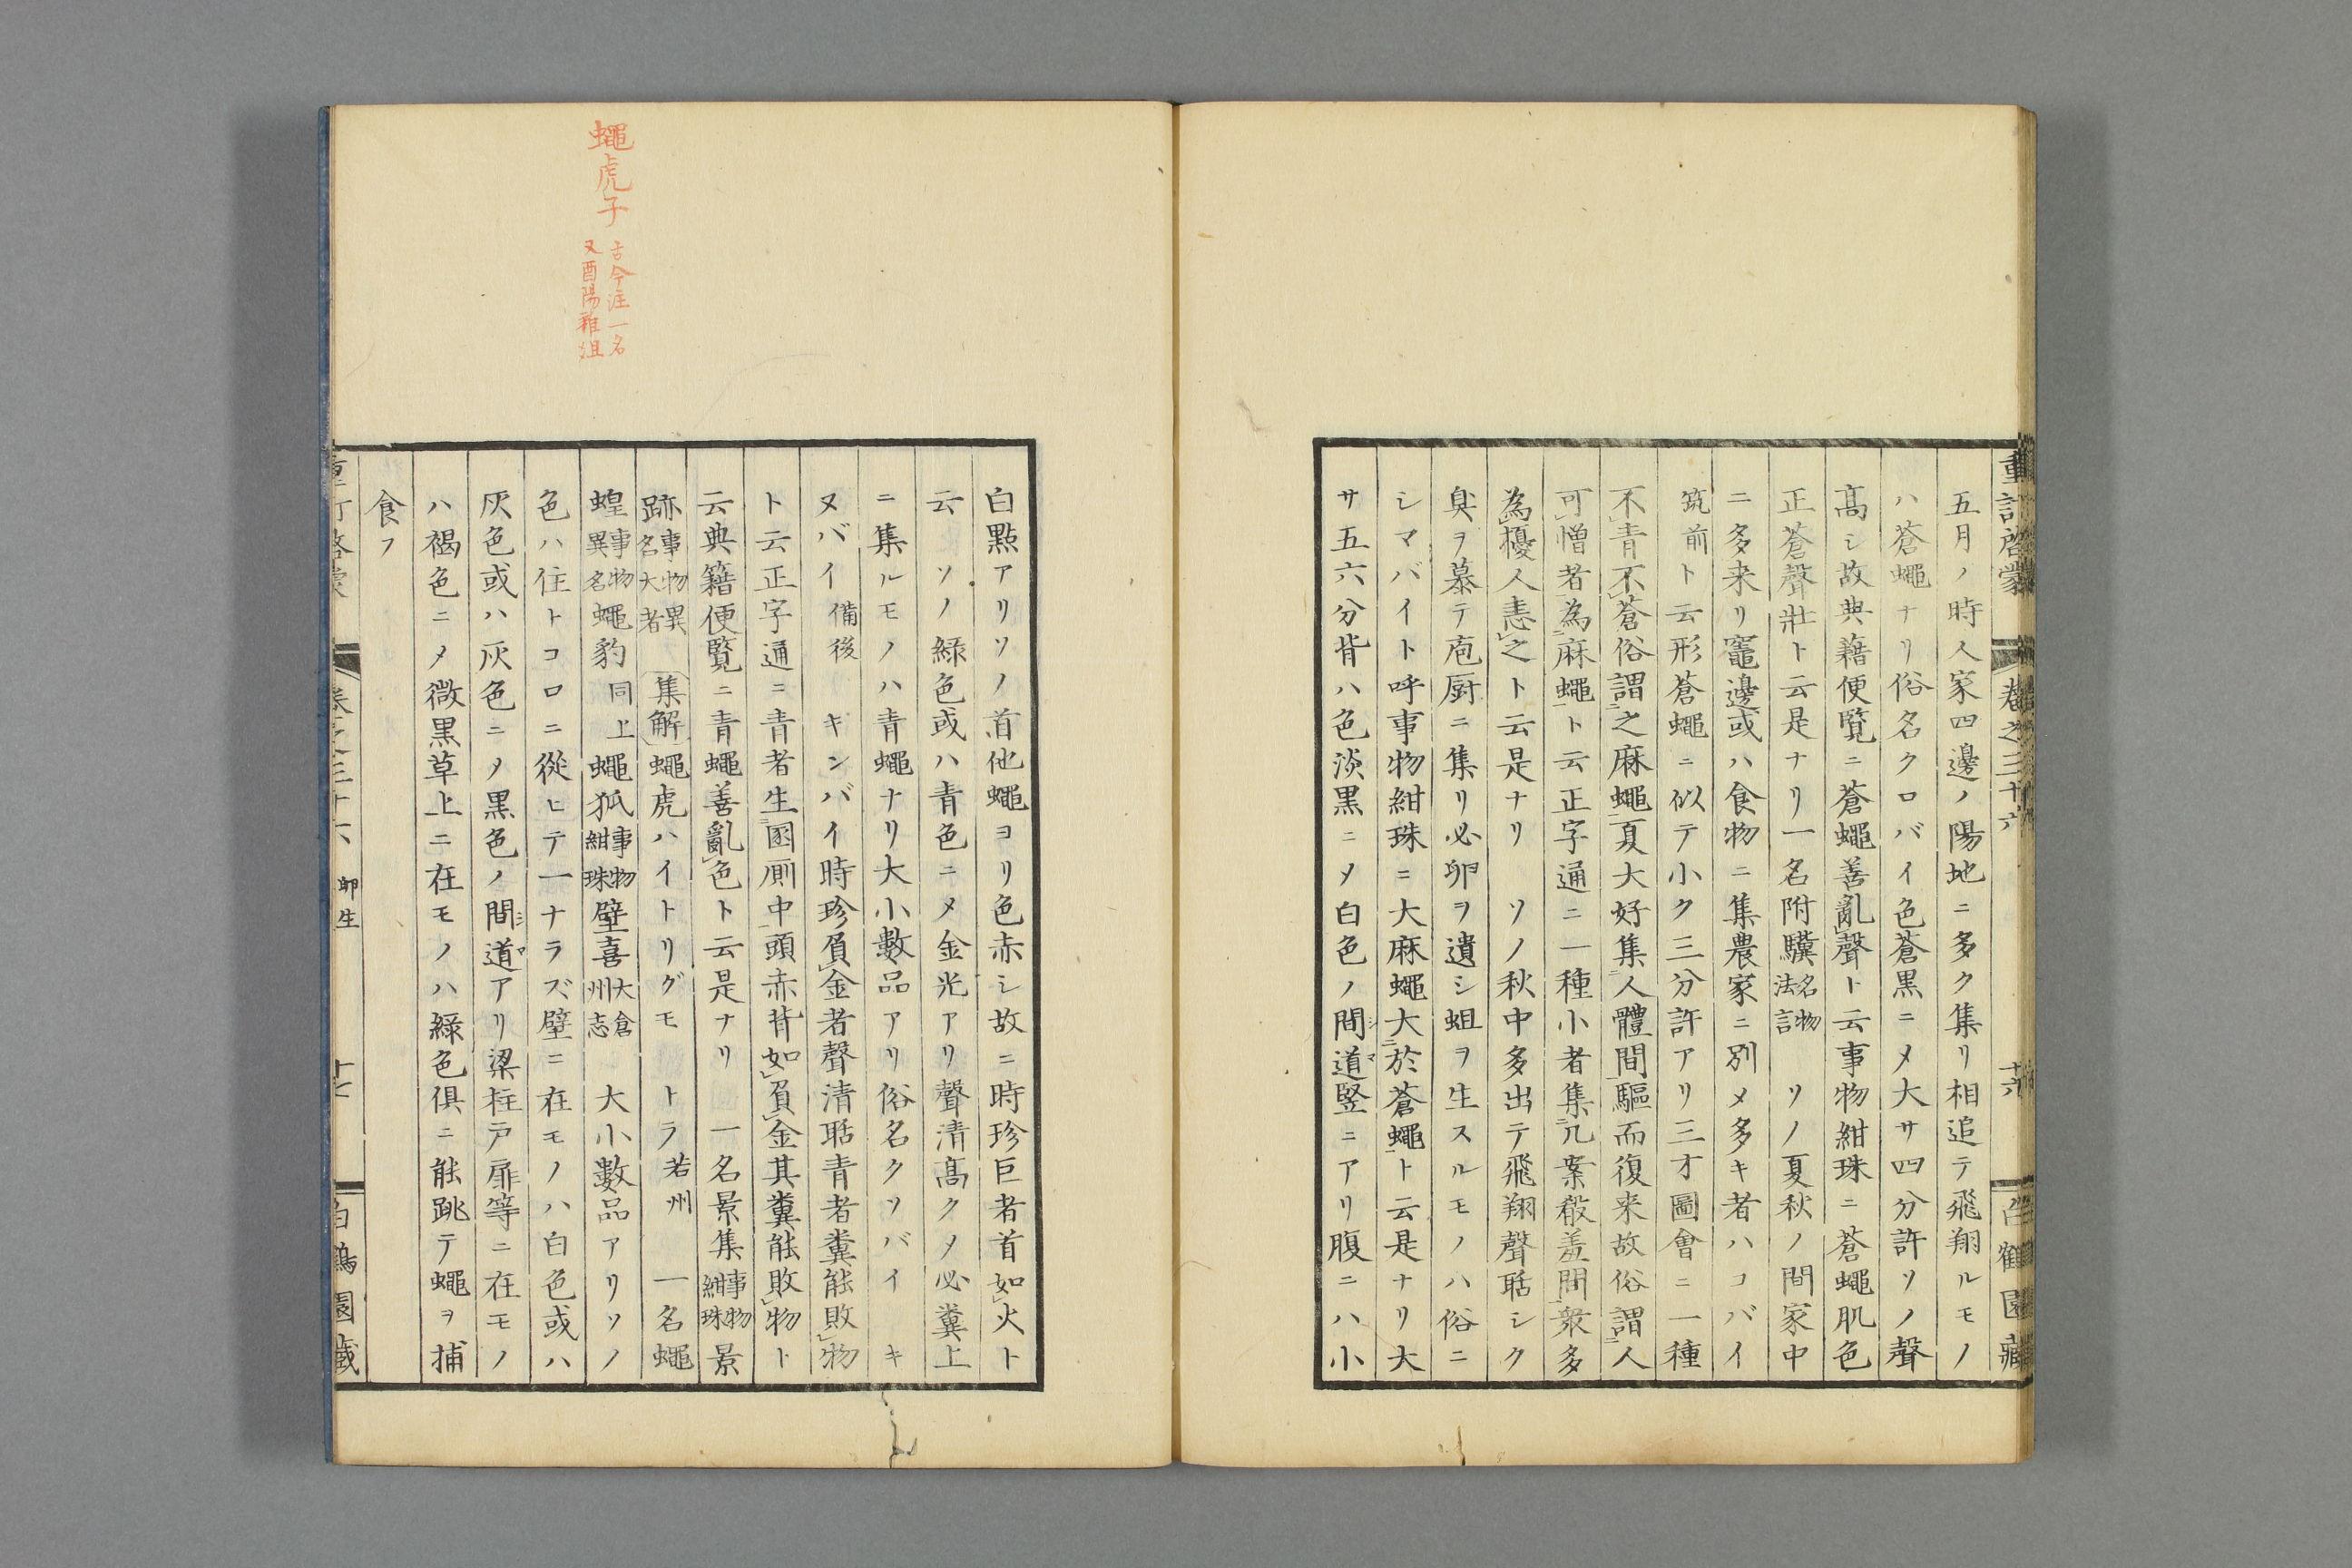 重訂啓蒙 卷之三十六 十六 白鶴園藏
五月ノ時人家四邊ノ陽地ニ多ク集リ相追テ飛翔ルモノ
ハ蒼蠅ナリ俗名クロバイ色蒼黒ニメ大サ四分許ソノ聲
髙シ故典藉便覽ニ蒼蠅善亂聲ト云事物紺珠ニ蒼蠅肌色
正蒼聲壯ト云是ナリ一名附驥名物法言 ソノ夏秋ノ間家中
ニ多来リ竈邊或ハ食物ニ集農家ニ別メ多キ者ハコバイ
筑前ト云形蒼蠅ニ似テ小ク三分許アリ三才圖會ニ一種
不青不蒼俗謂之麻蠅夏大好集人體間驅而復来故俗謂人
可憎者為麻蠅ト云正字通ニ一種小者集几案殽羞間衆多
為擾人恚之ト云是ナリ ソノ秋中多出テ飛翔聲聒シク
臭ヲ慕テ庖厨ニ集リ必卵ヲ遺シ蛆ヲ生スルモノハ俗ニ
シマバイト呼事物紺珠ニ大麻蠅大於蒼蠅ト云是ナリ大
サ五六分背ハ色淡黒ニメ白色ノ間道竪ニアリ腹ニハ小
蠅虎子
古今注一名
又酉陽雜俎
白㸃アリソノ首他蠅ヨリ色赤シ故ニ時珍巨者首如火ト
云 ソノ綠色或ハ青色ニメ金光アリ聲清髙クメ必糞上
ニ集ルモノハ青蠅ナリ大小數品アリ俗名クソバイ キ
ヌバイ備後 キンバイ時珍負金者聲清聒青者糞能敗物
ト云正字通ニ青者生圂厠中頭赤背如負金其糞能敗物ト
云典籍便覽ニ青蠅善亂色ト云是ナリ 一名景集事物紺珠景
跡事物異名大者 集解蠅虎ハイトリグモ トラ若州 一名蠅
蝗事物異名蠅豹同上蠅狐事物紺珠壁喜大倉州志 大小數品アリソノ
色ハ住トコロニ從ヒテ一ナラズ壁ニ在モノハ白色或ハ
灰色或ハ灰色ニメ黒色ノ間道アリ梁柱戸扉等ニ在モノ
ハ褐色ニメ微黒草上ニ在モノハ綠色俱ニ能跳テ蠅ヲ捕
食フ
重訂啓蒙 卷之三十六 卵生 十七 白鶴園藏